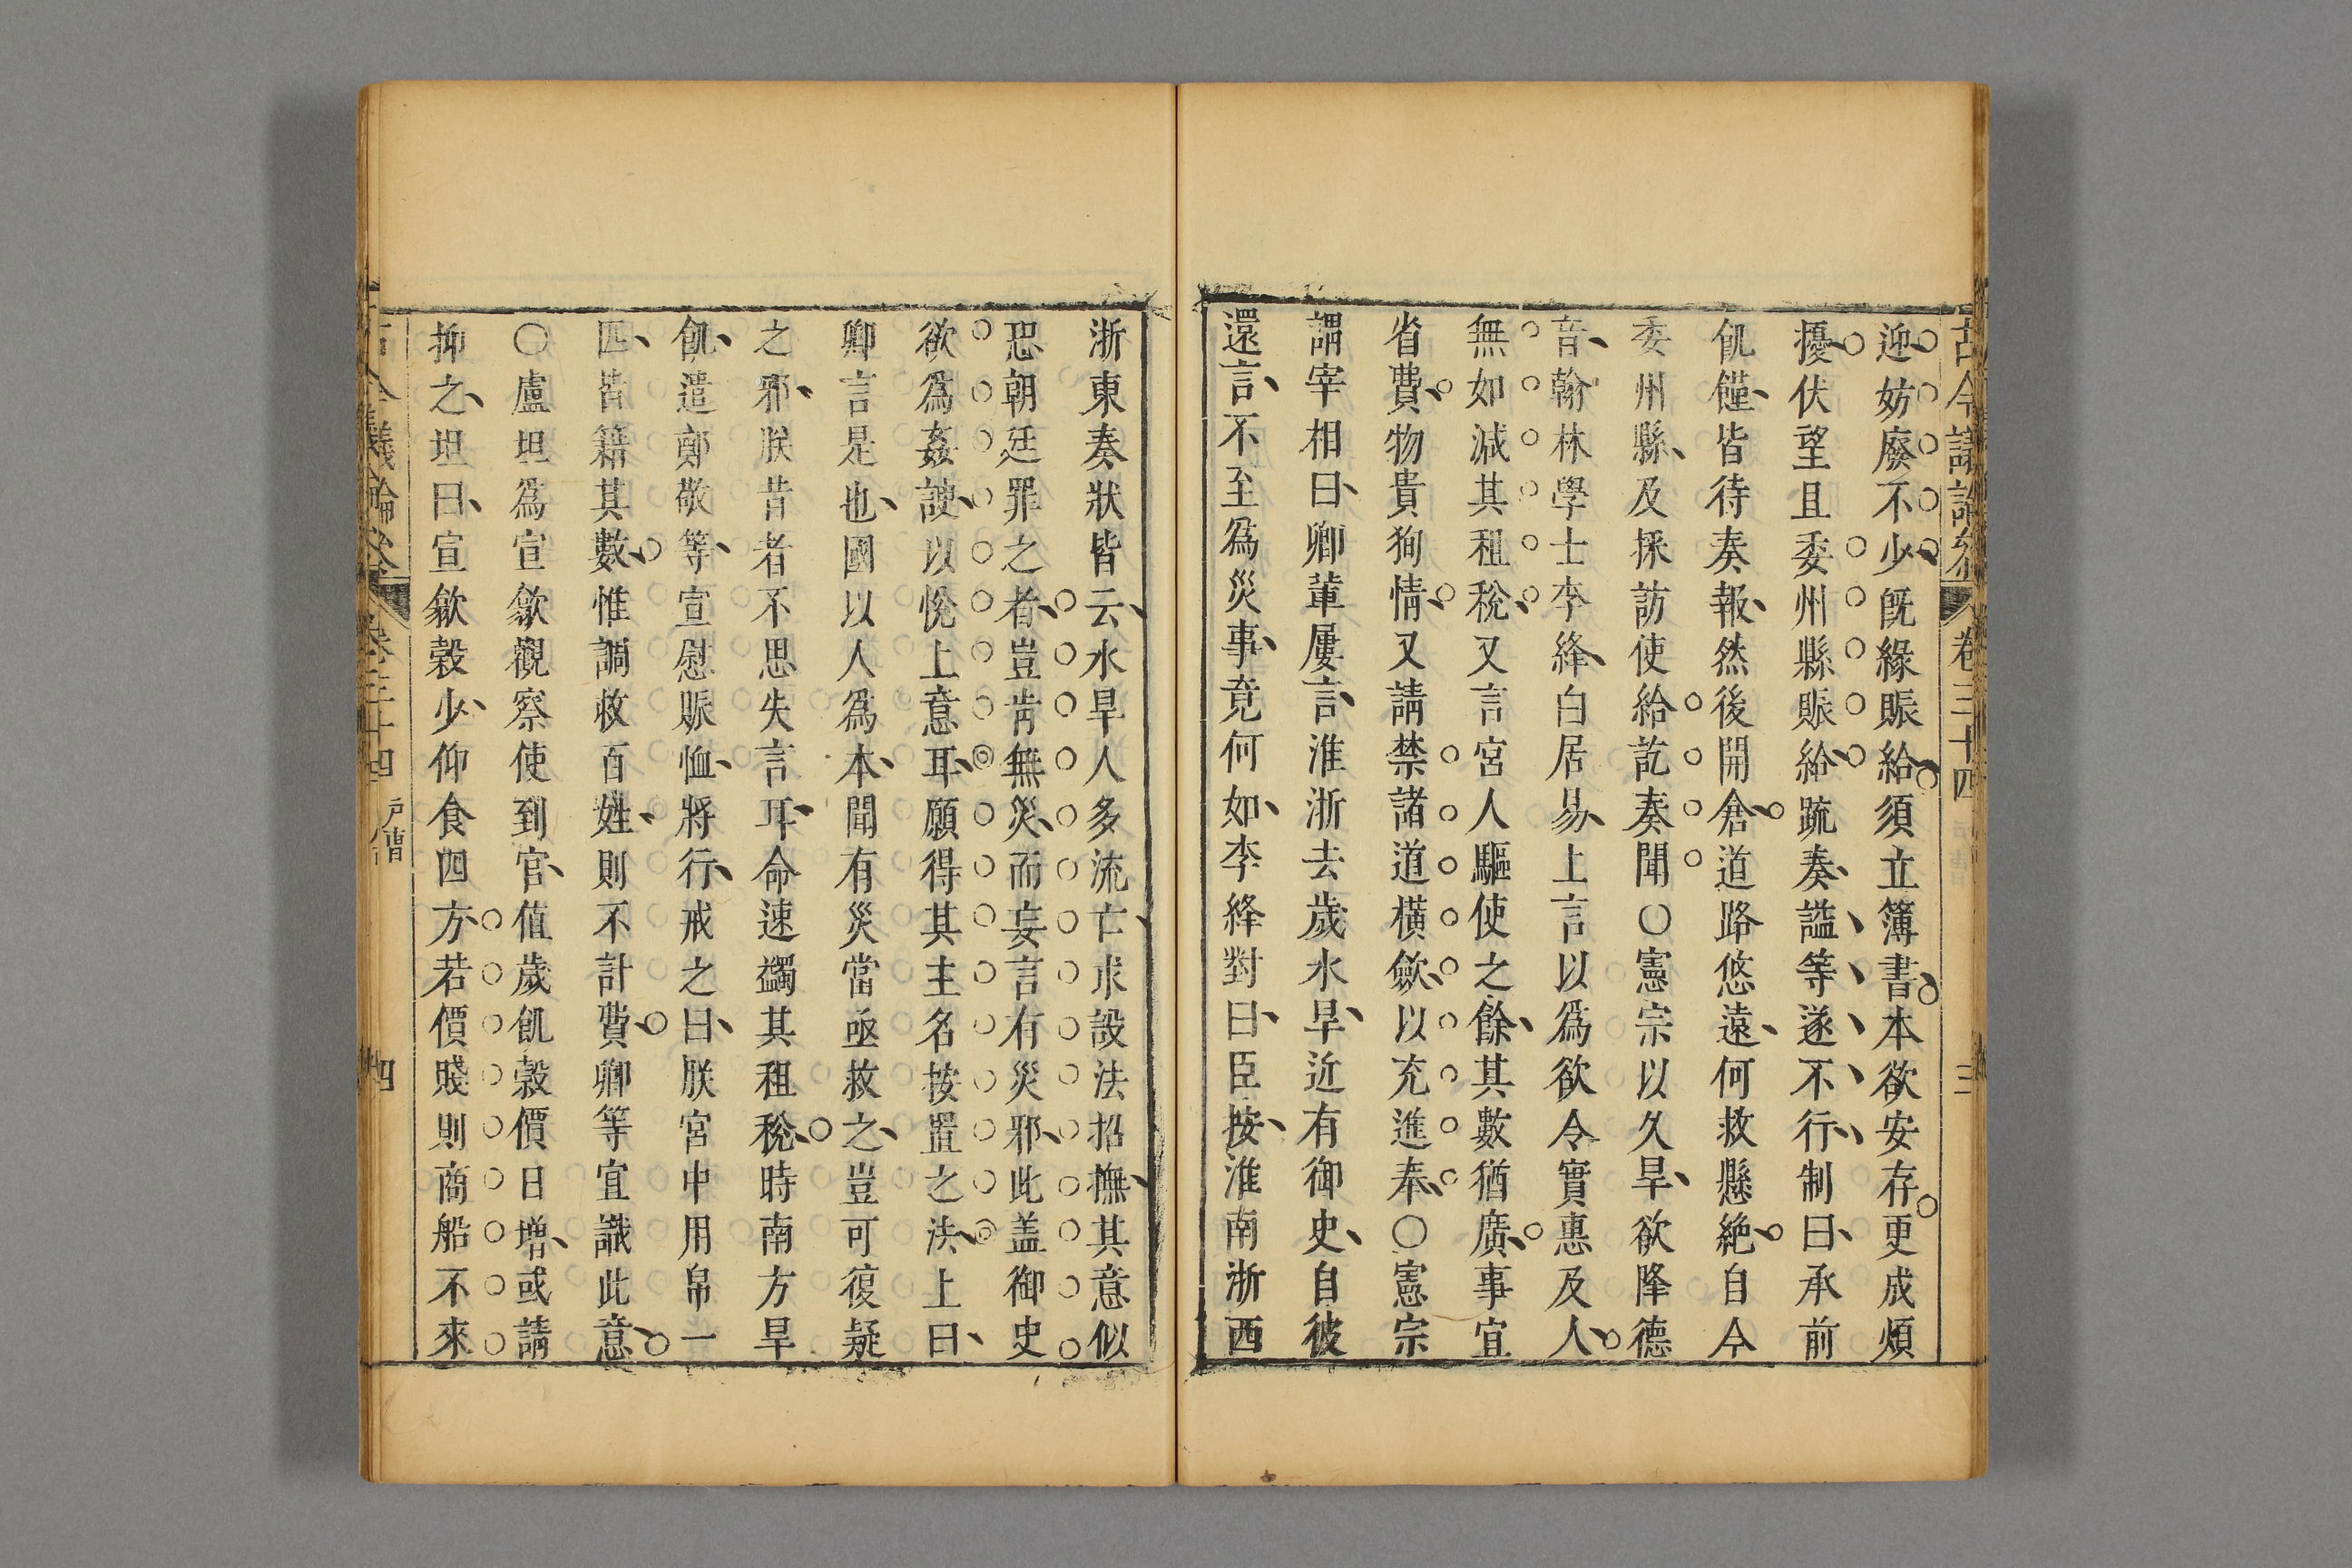 古今議論參 卷三十四 三
迎妨廢不少旣緣賑給須立簿書本欲安存更成煩
擾伏望且委州縣賑給疏奏謚等遂不行制曰承前
飢饉皆待奏報然後開倉道路悠遠何救懸絶自今
委州縣及採訪使給訖奏聞○憲宗以久旱欲降德
音翰林學士李絳白居易上言以爲欲令實惠及人
無如減其租稅又言宮人驅使之餘其數猶廣事宜
省費物貴狥情又請禁諸道橫歛以充進奉○憲宗
謂宰相曰卿軰屢言淮浙去歲水旱近有御史自彼
還言不至爲災事竟何如李絳對曰臣按淮南浙西
浙東奏狀皆云水旱人多流亡求設法招撫其意似
恐朝廷罪之者豈肯無災而妄言有災邪此盖御史
欲爲姦諛以悅上意耳願得其主名按置之法上曰
卿言是也國以人爲本聞有災當亟救之豈可復疑
之邪朕昔者不思失言耳命速蠲其租稅時南方旱
飢遣鄭敬等宣慰賑恤將行戒之曰朕宮中用帛一
匹皆籍其數惟賙救百姓則不計費卿等宜識此意
○盧坦爲宣歙觀察使到官值歲飢穀價日增或請
抑之坦曰宣歙穀少仰食四方若價賤則商船不來
古今議論參 卷三十四 戶曹 四